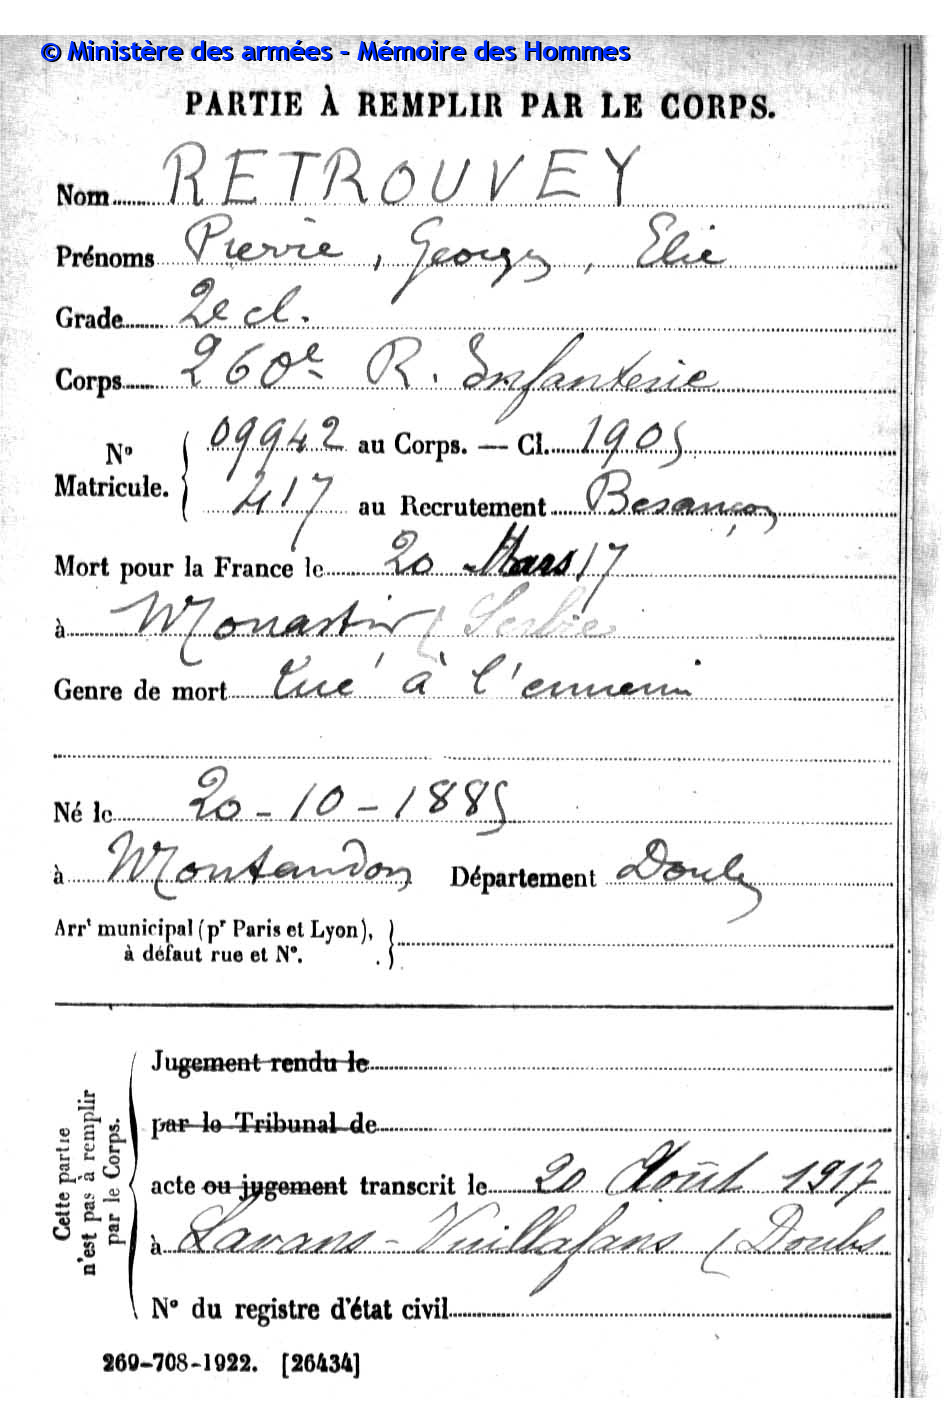 © Ministère des armées - Mémoire des Hommes
PARTIE À REMPLIR PAR LE CORPS.
Nom RETROUVEY
Prénoms Pierre, Georges, Elie
Grade 2e cl.
Corps 260e R. Infanterie
N° Matricule. 09942 au Corps. — Cl. 1905
417 au Recrutement Besançon
Mort pour la France le 20 Mars 17
à Monastir (Serbie
Genre de mort tué à l'ennemi
Né le 20-10-1885
à Montandon Département Doubs
Arrt municipal (pr Paris et Lyon),
à défaut rue et N°.
Cette partie n'est pas à remplir par le Corps.
Jugement rendu le
par le Tribunal de
acte ou jugement transcrit le 20 Août 1917
à Lavans-Vuillafans (Doubs
N° du registre d'état civil
269-708-1922. [26434]